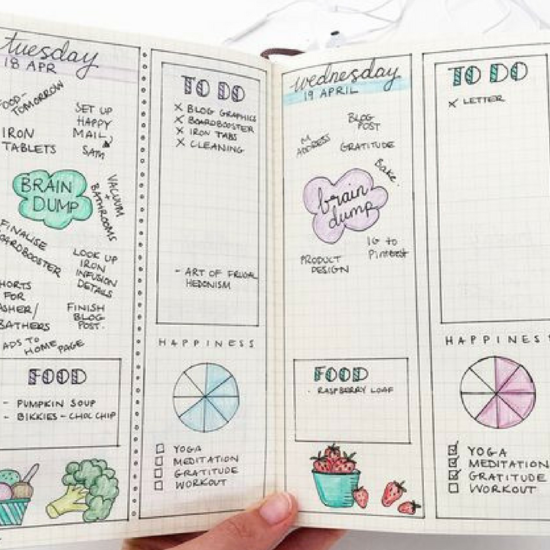 tuesday
18 APR
FOOD-
TOMORROW
SET UP
HAPPY
MAIL
SAM
IRON
TABLETS
BRAIN
DUMP
VACUUM
+
BATHROOMS
FINALISE
LOOK UP
IRON
INFUSION
DETAILS
FOR
FINISH
BLOG
POST.
ADS TO
HOME PAGE
FOOD
- PUMPKIN SOUP
- BIKKIES - CHOC CHIP
TO DO
X BLOG GRAPHICS
X BOARDBOOSTER
X IRON TABS
X CLEANING
- ART OF FRUGAL
HEDONISM
HAPPINESS
YOGA
MEDITATION
GRATITUDE
WORKOUT
wednesday
19 APRIL
BLOG
POST
M
ADDRESS
GRATITUDE
Bake.
brain
dump
IG to
Pinterest
PRODUCT
DESIGN
FOOD
- RASPBERRY LOAF
TO DO
X LETTER
HAPPINES
YOGA
MEDITATION
GRATITUDE
WORKOUT